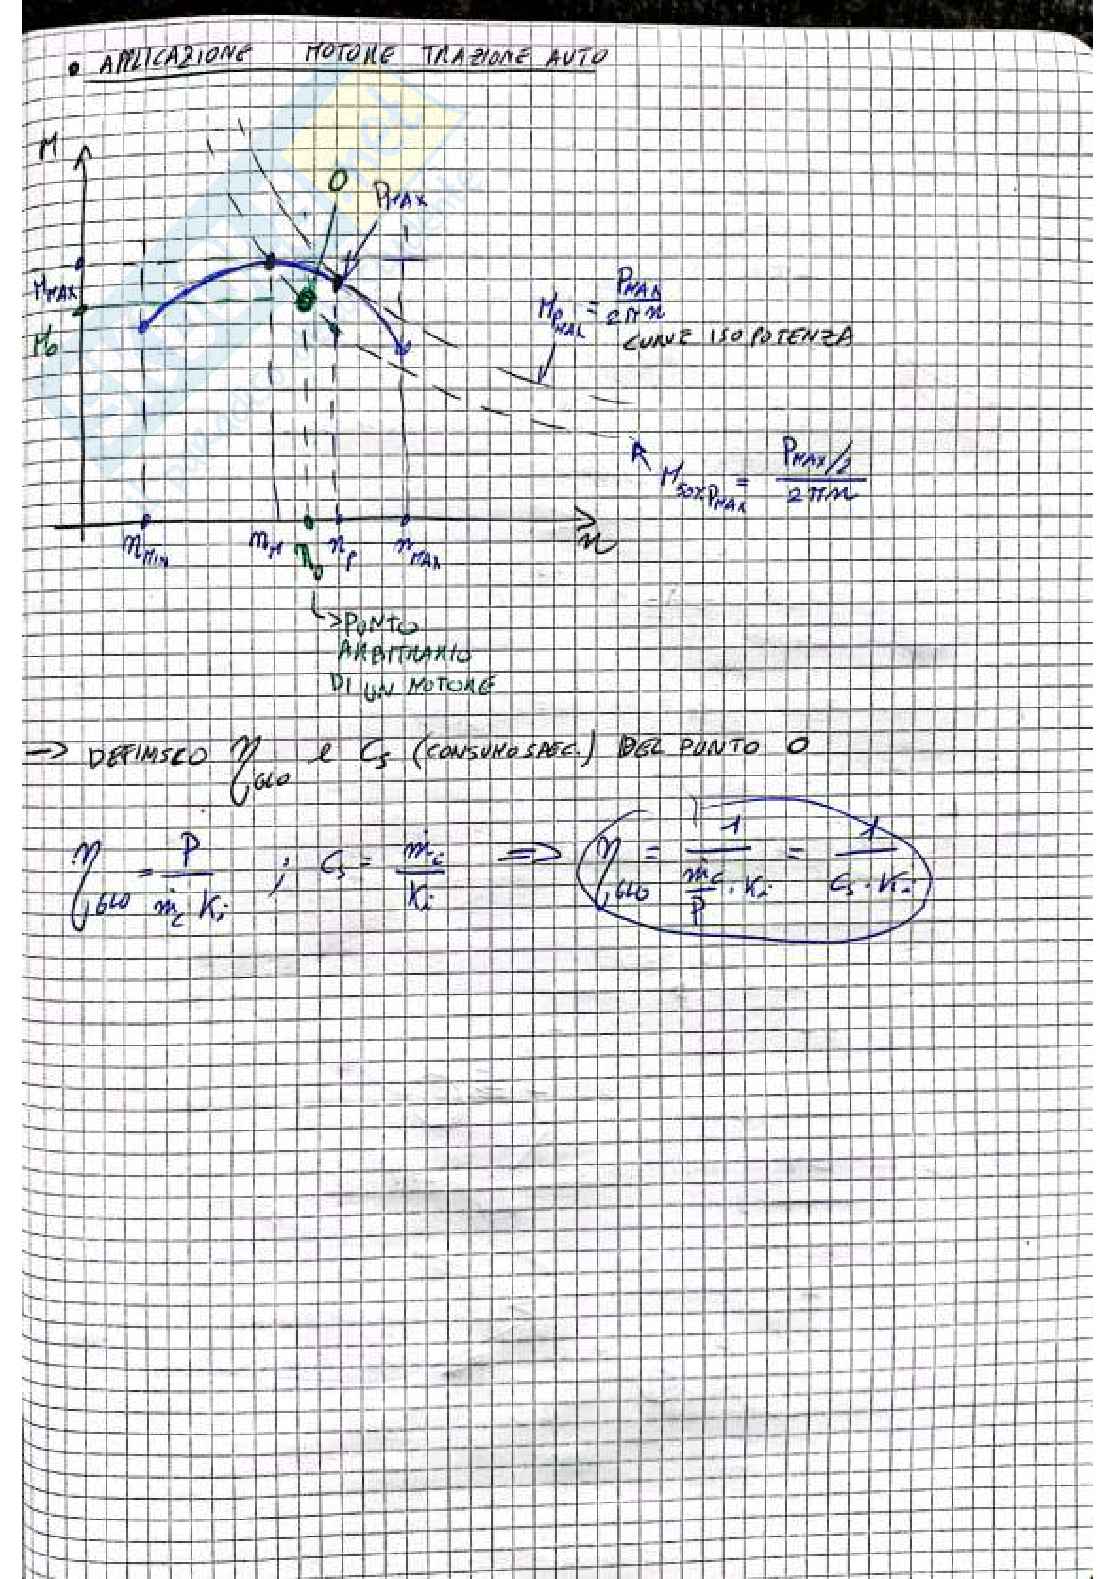 • APPLICAZIONE MOTORE TRAZIONE AUTO
M
O
P_MAX
M_MAX
M_O
M_P_MAX = P_MAX / 2πn
CURVE ISO POTENZA
M_50%P_MAX = P_MAX/2 / 2πn
n_MIN n_M n_O n_P n_MAX n
↳ PUNTO
ARBITRARIO
DI UN MOTORE
→ DEFINISCO η_GLO e C_S (CONSUMO SPEC.) DEL PUNTO O
η_GLO = P / ṁ_c K_i ; C_S = ṁ_c / K_i ⇒ η_GLO = 1 / (ṁ_c/P · K_i) = 1 / C_S · K_i